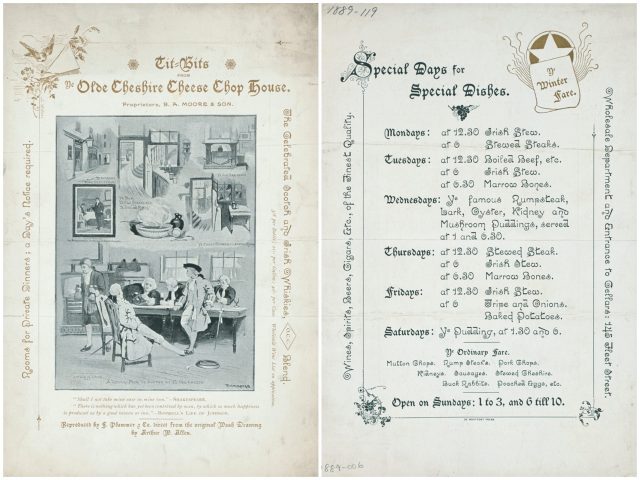 Tit-Bits
FROM
Ye Olde Cheshire Cheese Chop House.
Proprietors, B. A. MOORE & SON.
Rooms for Private Dinners: a Day's Notice required.
The Celebrated Scotch and Irish Whiskies,
Blend.
"Shall I not take mine ease in mine inn."—SHAKESPEARE.
"There is nothing which has yet been contrived by man, by which so much happiness
is produced as by a good tavern or inn."—BOSWELL'S LIFE OF JOHNSON.
Reproduced by J. Plummer & Co. direct from the original Wash Drawing
by Arthur W. Allen.
1889-119
Special Days for
Special Dishes.
Ye
Winter
Fare.
Mondays: at 12.30 Irish Stew.
at 6 Stewed Steaks.
Tuesdays: at 12.30 Boiled Beef, etc.
at 6 Irish Stew.
at 6.30 Marrow Bones.
Wednesdays: Ye famous Rumpsteak,
Lark, Oyster, Kidney and
Mushroom Puddings, served
at 1 and 6.30.
Thursdays: at 12.30 Stewed Steak.
at 6 Irish Stew.
at 6.30 Marrow Bones.
Fridays: at 12.30 Irish Stew.
at 6 Tripe and Onions.
Baked Potatoes.
Saturdays: Ye Pudding, at 1.30 and 6.
Ye Ordinary Fare.
Mutton Chops. Rump Steaks. Pork Chops.
Kidneys. Sausages. Stewed Cheshire.
Buck Rabbits. Poached Eggs, etc.
Open on Sundays: 1 to 3, and 6 till 10.
Wines, Spirits, Beers, Cigars, Etc., of the Finest Quality.
Wholesale Department and Entrance to Cellars: 145 Fleet Street.